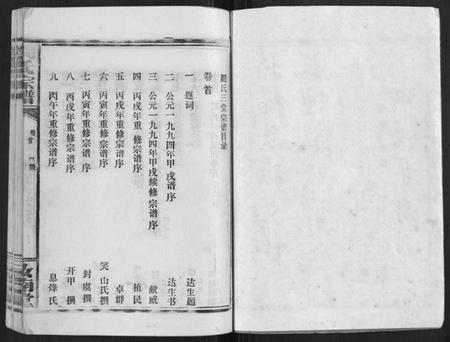 周氏三堂宗谱目录
卷首
一 题词 达生题
二 公元一九九四年甲戌谱序 达生书
三 公元一九九四年甲戌续修宗谱序 献威
四 丙戌年重修宗谱序 植民
五 丙戌年重修宗谱序 卓群
六 丙寅年重修宗谱序 笑山氏撰
七 丙寅年重修宗谱序 封虞撰
八 丙戌年重修宗谱序 开甲撰
九 丙午年重修宗谱序 息烽氏
氏宗谱
卷首
汝南堂